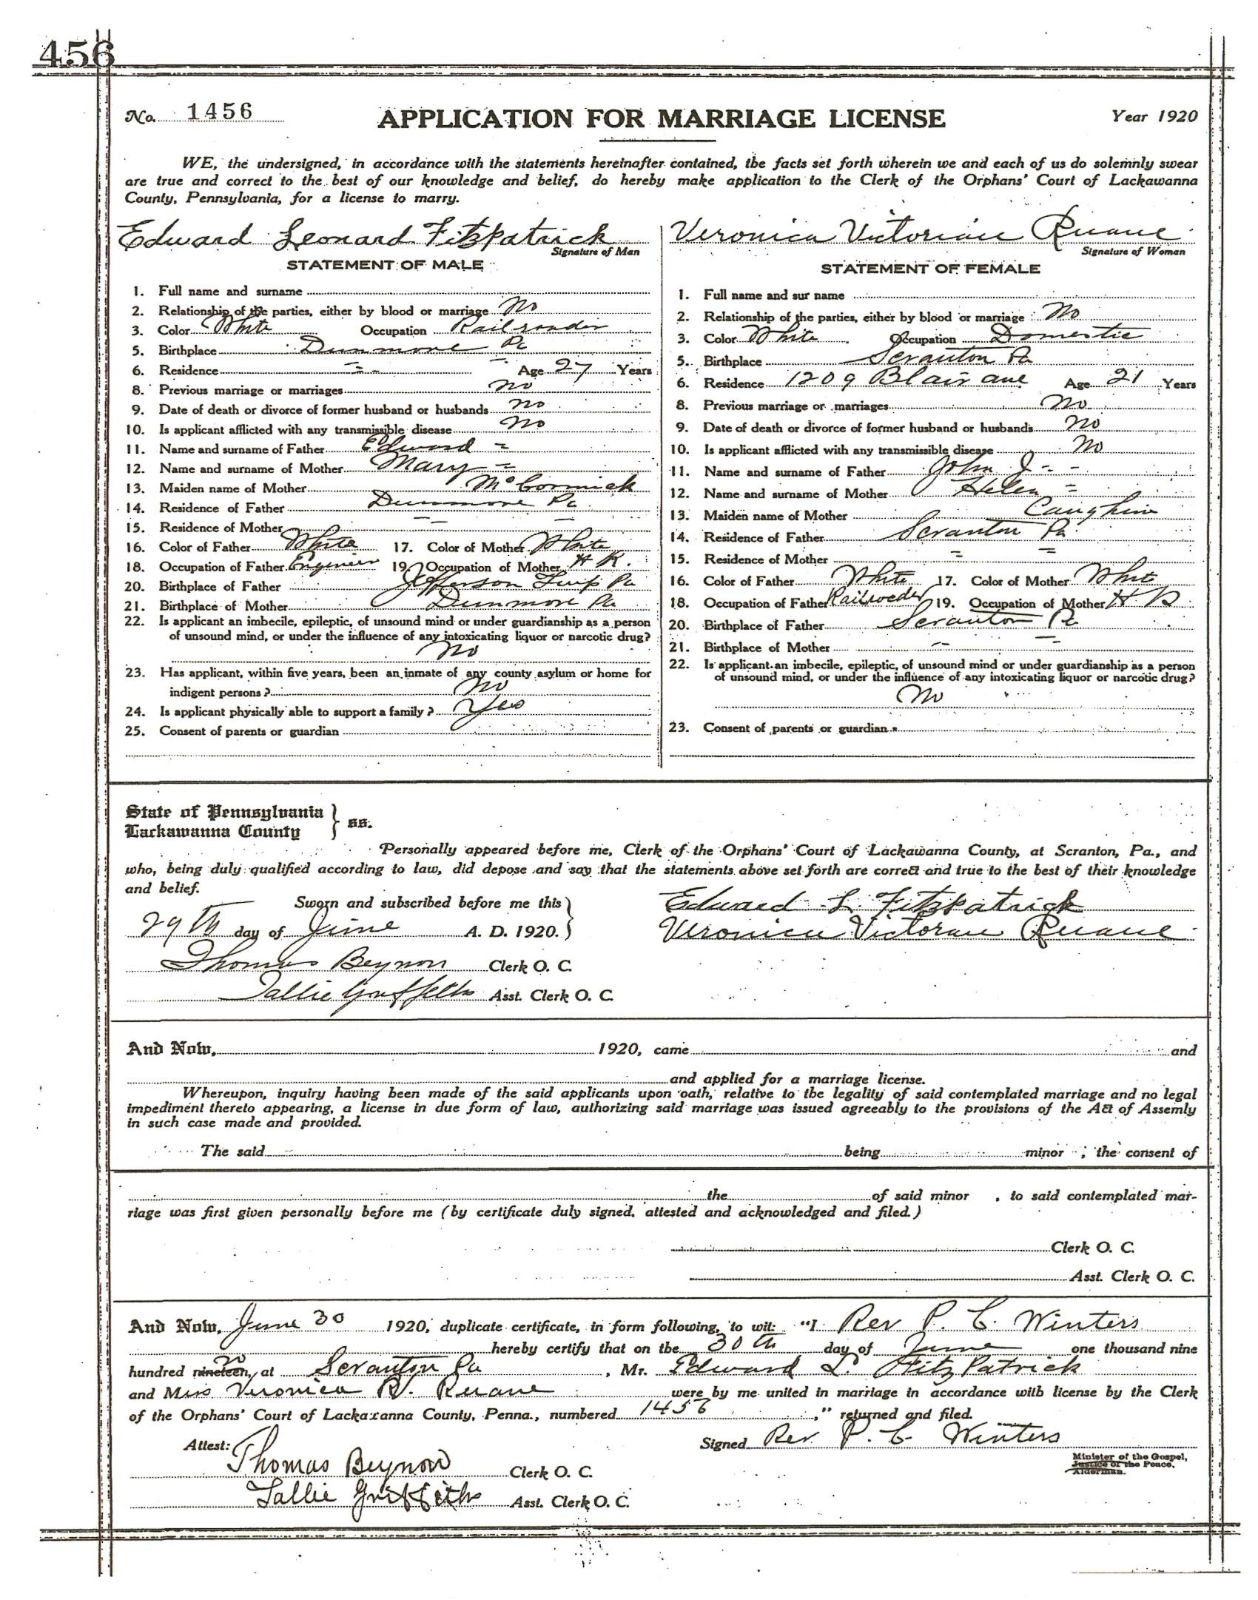 456
No. 1456 APPLICATION FOR MARRIAGE LICENSE Year 1920
WE, the undersigned, in accordance with the statements hereinafter contained, the facts set forth wherein we and each of us do solemnly swear
are true and correct to the best of our knowledge and belief, do hereby make application to the Clerk of the Orphans' Court of Lackawanna
County, Pennsylvania, for a license to marry.
Edward Leonard Fitzpatrick
Signature of Man
STATEMENT OF MALE
1. Full name and surname
2. Relationship of the parties, either by blood or marriage No
3. Color White Occupation Railroader
5. Birthplace Dunmore Pa
6. Residence " Age 27 Years
8. Previous marriage or marriages No
9. Date of death or divorce of former husband or husbands No
10. Is applicant afflicted with any transmissible disease No
11. Name and surname of Father Edward "
12. Name and surname of Mother Mary "
13. Maiden name of Mother McCormick
14. Residence of Father Dunmore Pa
15. Residence of Mother " "
16. Color of Father White 17. Color of Mother White
18. Occupation of Father Engineer 19. Occupation of Mother H K.
20. Birthplace of Father Jefferson Twp Pa
21. Birthplace of Mother Dunmore Pa
22. Is applicant an imbecile, epileptic, of unsound mind or under guardianship as a person
of unsound mind, or under the influence of any intoxicating liquor or narcotic drug?
No
23. Has applicant, within five years, been an inmate of any county asylum or home for
indigent persons? No
24. Is applicant physically able to support a family? Yes
25. Consent of parents or guardian
Veronica Victorian Ruane
Signature of Woman
STATEMENT OF FEMALE
1. Full name and sur name
2. Relationship of the parties, either by blood or marriage No
3. Color White Occupation Domestic
5. Birthplace Scranton Pa
6. Residence 1209 Blair ave Age 21 Years
8. Previous marriage or marriages No
9. Date of death or divorce of former husband or husbands No
10. Is applicant afflicted with any transmissible disease No
11. Name and surname of Father John J " "
12. Name and surname of Mother Helen "
13. Maiden name of Mother
14. Residence of Father Scranton Pa
15. Residence of Mother " "
16. Color of Father White 17. Color of Mother White
18. Occupation of Father Railroader 19. Occupation of Mother H
20. Birthplace of Father Scranton Pa
21. Birthplace of Mother " "
22. Is applicant an imbecile, epileptic, of unsound mind or under guardianship as a person
of unsound mind, or under the influence of any intoxicating liquor or narcotic drug?
No
23. Consent of parents or guardian
State of Pennsylvania
Lackawanna County } ss.
Personally appeared before me, Clerk of the Orphans' Court of Lackawanna County, at Scranton, Pa., and
who, being duly qualified according to law, did depose and say that the statements above set forth are correct and true to the best of their knowledge
and belief.
Sworn and subscribed before me this } Edward L Fitzpatrick
29th day of June A. D. 1920. Veronica Victorian Ruane
Thomas Beynon Clerk O. C.
Tallie Griffiths Asst. Clerk O. C.
And Now, 1920, came and
and applied for a marriage license.
Whereupon, inquiry having been made of the said applicants upon oath, relative to the legality of said contemplated marriage and no legal
impediment thereto appearing, a license in due form of law, authorizing said marriage was issued agreeably to the provisions of the Act of Assemly
in such case made and provided.
The said being minor , the consent of
the of said minor , to said contemplated mar-
riage was first given personally before me (by certificate duly signed, attested and acknowledged and filed.)
Clerk O. C.
Asst. Clerk O. C.
And Now, June 30 1920, duplicate certificate, in form following, to wit: "I Rev P. C. Winters
hereby certify that on the 30th day of June one thousand nine
hundred nineteen, at Scranton Pa , Mr. Edward L. FitzPatrick
and Miss Veronica V. Ruane were by me united in marriage in accordance with license by the Clerk
of the Orphans' Court of Lackawanna County, Penna., numbered 1456 ," returned and filed.
Attest: Signed Rev. P. C. Winters
Minister of the Gospel,
Justice of the Peace,
Alderman.
Thomas Beynon Clerk O. C.
Tallie Griffiths Asst. Clerk O. C.